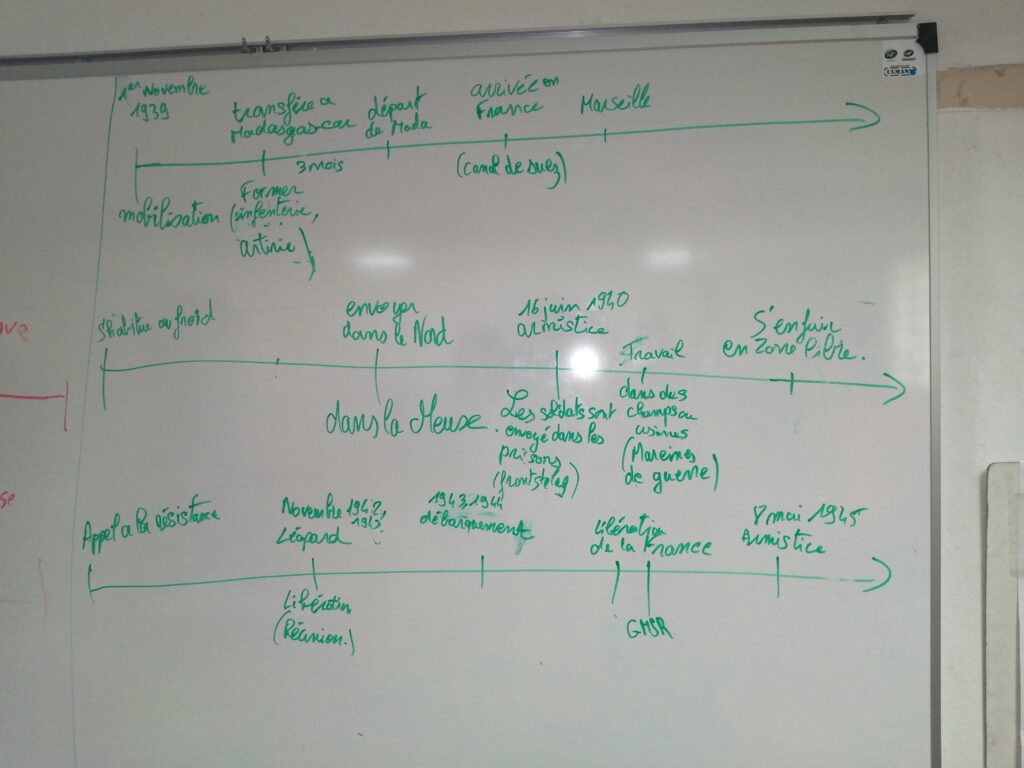 1er Novembre
1939
transfére a
Madagascar
départ
de Mada
arrivée en
France
Marseille
3 mois
(canal de suez)
mobilisation
Former
(infenterie,
artirie)
S'habitue au froid
envoyer
dans le Nord
16 juin 1940
armistice
Travail
S'enfuir
en Zone libre.
dans la Meuse.
Les soldats sont
envoyé dans les
prisons
(frontstalag)
dans des
champs ou
usines
de guerre)
Appel a la résistance
Novembre 1942,
1943
Léopard
1943, 1944
débarquement
Libération
de la France
8 mai 1945
Armistice
Libération
(Réunion.)
GMSR
ULMANN